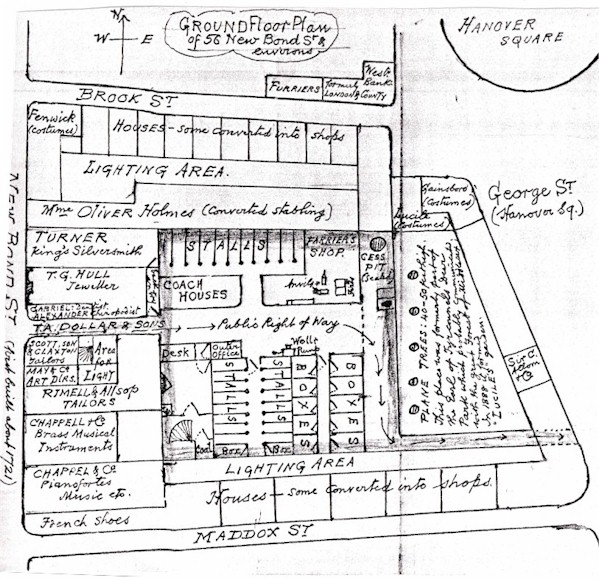 GROUND Floor Plan
of 56 New Bond St &
environs
N
W
E
HANOVER
SQUARE
West
Bank
formerly
LONDON & COUNTY
FURRIERS
BROOK ST
Fenwick
(costumes)
HOUSES - some converted into shops
LIGHTING AREA.
Mme OLIVER HOLMES (Converted stabling)
Gainsboro
(Costumes)
Lucile
(Costumes)
George St
(Hanover Sq.)
NEW BOND ST (first built about 1721)
TURNER
King's Silversmith
T.G. HULL
Jeweller
GABRIEL: Dentist
ALEXANDER Chiropodist
STALLS
FARRIER'S
SHOP.
COACH
HOUSES
Anvil
CESS
PIT
T.A. DOLLAR & SONS
Public's Right of Way
SCOTT, SON
& CLAXTON
Tailors
Area
for
LIGHT
MAY & Co
ART DLRS.
RIMELL & Allsop
TAILORS
CHAPPELL & Co
Brass Musical
Instruments
CHAPPEL & Co
Pianofortes
Music etc.
French Shoes
Desk
Outer
Office
Well &
Pump
STALLS
STALLS
BOXES
BOXES
Coal
Box
Box
PLANE TREES: No. 50 Parish.
This place was formerly part of
In 1888 it formed
"LUCILE'S" garden.
Sir C.
Allom
& Co
LIGHTING AREA
Houses - some converted into shops.
MADDOX ST